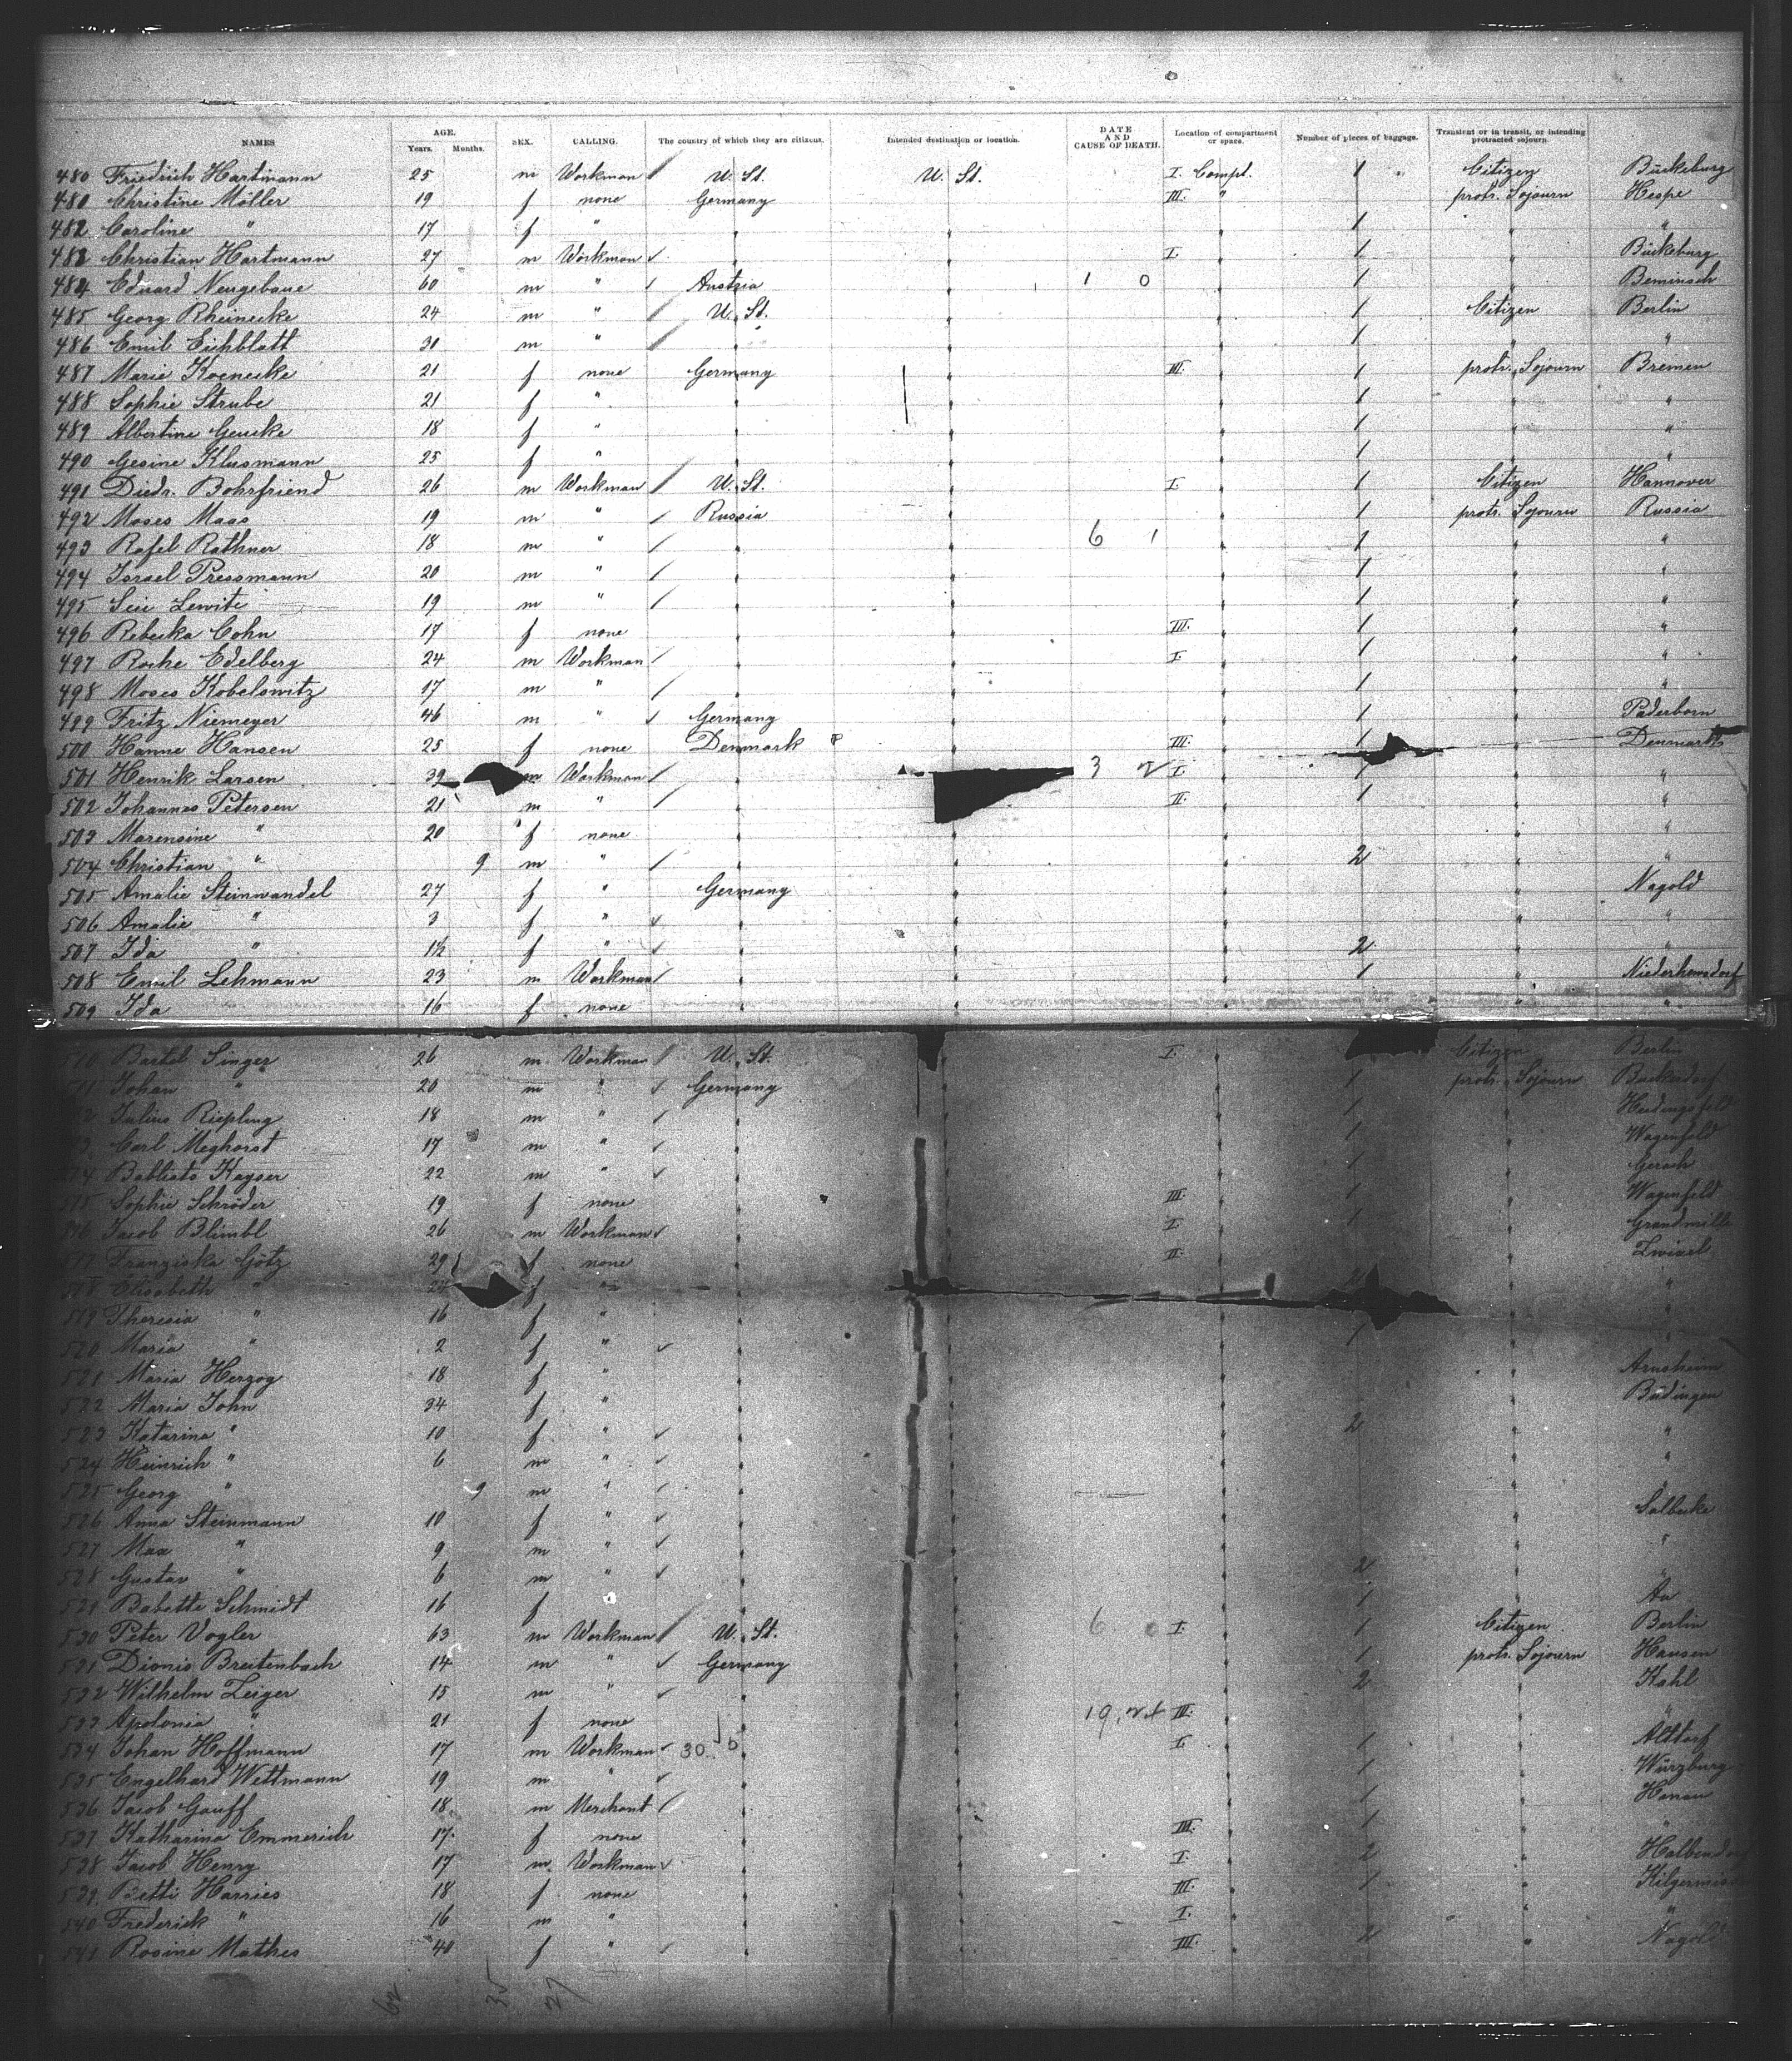 NAMES AGE. Years. Months. SEX. CALLING. The country of which they are citizens. Intended destination or location. DATE AND CAUSE OF DEATH. Location of compartment or space. Number of pieces of baggage. Transient or in transit, or intending protracted sojourn.
480 Friedrich Hartmann 25 m Workman U. St. U. St. I. Compt. 1 Citizen Bückeburg
481 Christine Möller 19 f none Germany " III. " protr. Sojourn Hespe
482 Caroline " 17 f " " " " 1 " "
483 Christian Hartmann 27 m Workman " " I. " 1 " Bückeburg
484 Eduard Neugebaue 60 m " Austria " 1 0 " 1 "
485 Georg Rheinecke 24 m " U. St. " " 1 Citizen Berlin
486 Emil Eichblatt 31 m " " " " 1 " "
487 Marie Koenecke 21 f none Germany " III. " 1 protr. Sojourn Bremen
488 Sophie Strube 21 f " " " " 1 " "
489 Albertine Geucke 18 f " " " " 1 " "
490 Gesine Klusmann 25 f " " " " 1 " "
491 Diedr. Bohrfriend 26 m Workman U. St. " I. " 1 Citizen Hannover
492 Moses Maas 19 m " Russia " " 1 protr. Sojourn Russia
493 Rafel Rathner 18 m " " " 6 1 " 1 " "
494 Israel Pressmann 20 m " " " " 1 " "
495 Lewite 19 m " " " " 1 " "
496 Rebecka Cohn 17 f none " " III. " 1 " "
497 Roche Edelberg 24 m Workman " " I. " 1 " "
498 Moses Kobelswitz 17 m " " " " 1 " "
499 Fritz Niemeyer 46 m " Germany " " 1 " Paderborn
500 Hanne Hansen 25 f none Denmark " III. " 1 " Denmark
501 Henrik Larsen 39 m Workman " 3 2 I. " 1 " "
502 Johannes Petersen 21 m " " " II. " 1 " "
503 Marensine " 20 f none " " " " "
504 Christian " 9 m " " " " 2 " "
505 Amalie Steinwandel 27 f " Germany " " " Nagold
506 Amalie " 3 f " " " " " "
507 Ida " 1½ f " " " " 2 " "
508 Emil Lehmann 23 m Workman " " " 1 "
509 Ida 16 f none " " " " "
Bartel Singer 26 m. Workman U. St. I. Citizen Berlin
Johan " 20 m " Germany " " 1 protr. Sojourn
Julius Riepling 18 m " " " " 1 " Heidingsfeld
Carl Meghorst 17 m " " " " 1 " Wagenfeld
Kayser 22 m " " " " 1 " Gerach
Sophie Schröder 19 f none " " III. " 1 " Wagenfeld
Jacob Blimbl 26 m Workman " " I. " 1 "
Franziska Götz 29 f none " " II. " " Zwisel
Elisabeth " 24 f " " " "
519 Theresia " 16 f " " " " " "
520 Maria " 2 f " " " " 1 " "
521 Maria Herzog 18 f " " " " " Arnsheim
522 Maria John 34 f " " " " " Büdingen
523 Katarina " 10 f " " " " 2 " "
524 Heinrich " 6 m " " " " " "
525 Georg " 9 m " " " " "
526 Anna Steinmann 10 f " " " " " Salbeke
527 Max " 9 m " " " " " "
528 Gustav " 6 m " " " " 2 " "
529 Babette Schmidt 16 f " " " " 1 " Au
530 Peter Vogler 63 m Workman U. St. " 6 0 I. " 1 Citizen Berlin
531 Dionis Breitenbach 14 m " Germany " " 1 protr. Sojourn Hausen
532 Wilhelm Zeiger 15 m " " " " 2 " Kahl
533 Apolonia " 21 f none " " III. " " "
534 Johan Hoffmann 17 m Workman 30 " " I. " 1 " Altdorf
535 Engelhard Wettmann 19 m " " " " 1 " Würzburg
536 Jacob Gauff 18 m Merchant " " " 1 " Hanau
537 Katharina Emmerich 17 f none " " III. " 1 " "
538 Jacob Henry 17 m. Workman " " I. " 2 "
539 Betti Harries 18 f none " " III. " 1 "
540 Frederick " 16 m " " " I. " " "
541 Rosine Mathes 40 f " " " III. " 2 " Nagold
62 35 27